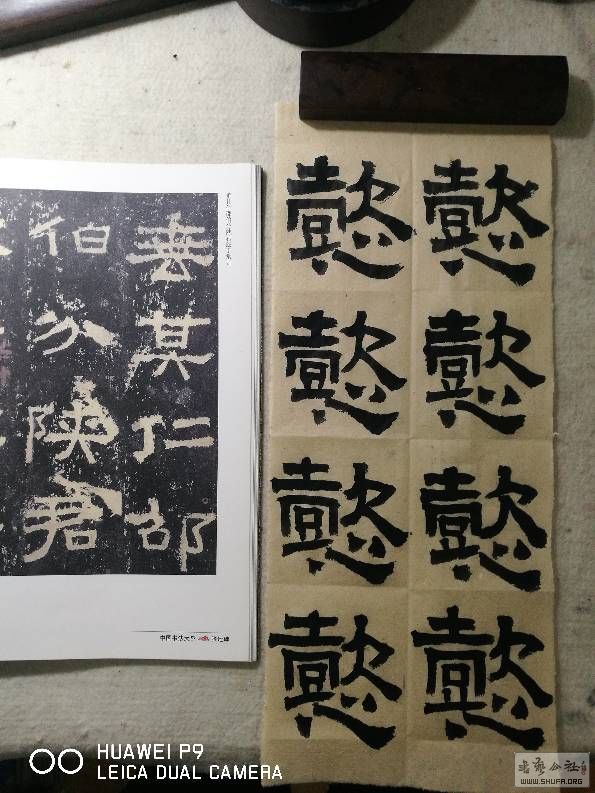 垂其仁邵
伯分陝君
懿懿懿懿
懿懿懿懿
HUAWEI P9
LEICA DUAL CAMERA
书艺公社
WWW.SHUFA.ORG